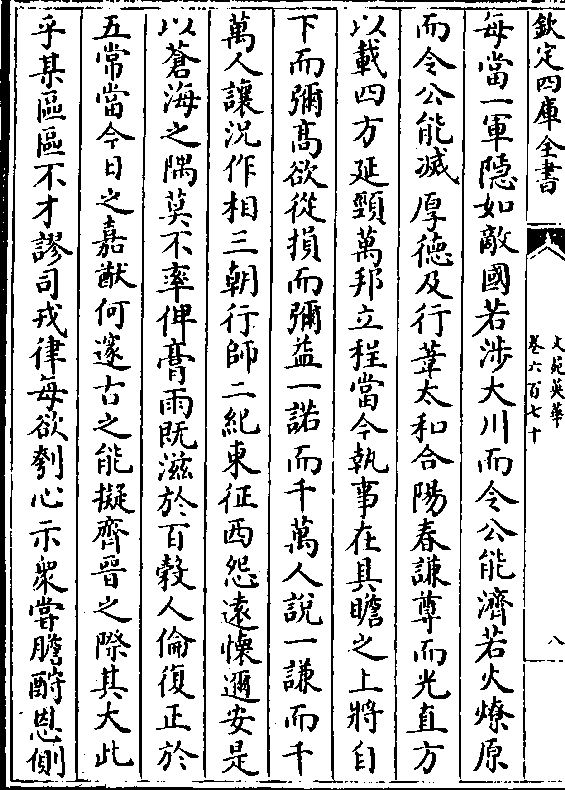 欽定四庫全書
文苑英華
卷六百七十
八
每當一軍隠如敵國若涉大川而令公能濟若火燎原
而令公能滅厚德及行葦太和合陽春謙尊而光直方
以載四方延頸萬邦立程當今執事在具瞻之上將自
下而彌髙欲從損而彌益一諾而千萬人說一謙而千
萬人讓況作相三朝行師二紀東征西怨遠懐邇安是
以蒼海之隅莫不率俾膏雨既滋於百榖人倫復正於
五常當今日之嘉猷何邃古之能擬齊晉之際其大此
乎某區區不才謬司戎律每欲刳心示衆嘗膽酧恩側